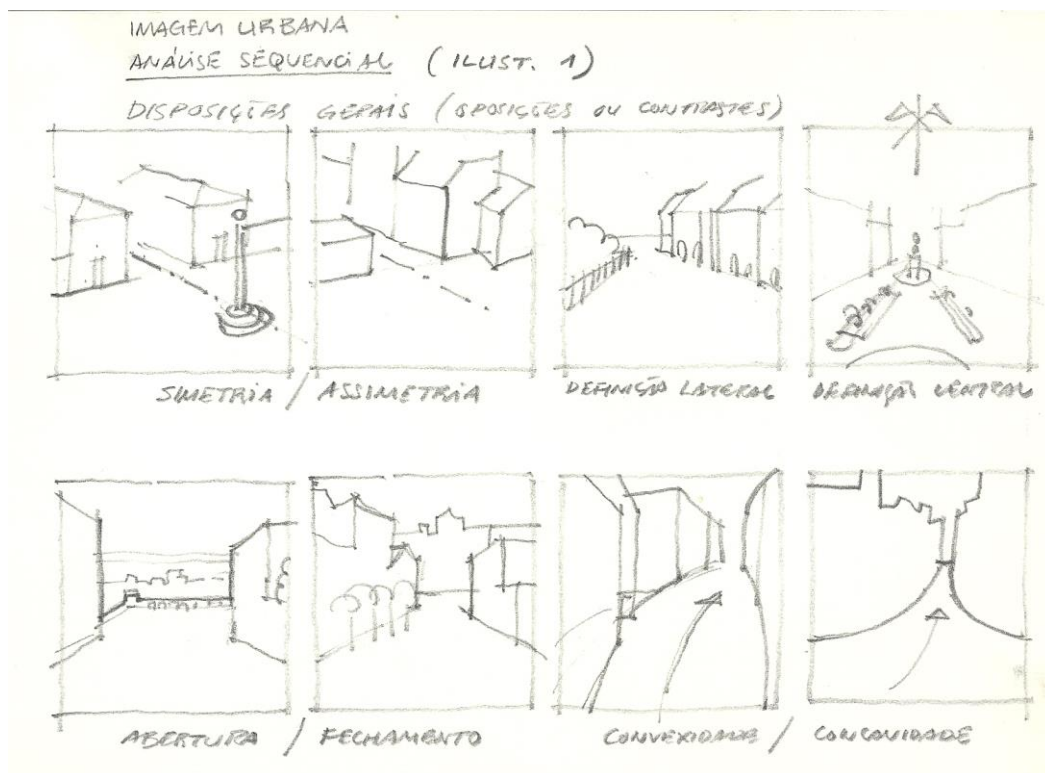 IMAGEM URBANA
ANÁLISE SEQUENCIAL (ILUST. 1)
DISPOSIÇÕES GERAIS (OPOSIÇÕES OU CONTRASTES)
SIMETRIA / ASSIMETRIA DEFINIÇÃO LATERAL DEFINIÇÃO CENTRAL
ABERTURA / FECHAMENTO CONVEXIDADE / CONCAVIDADE